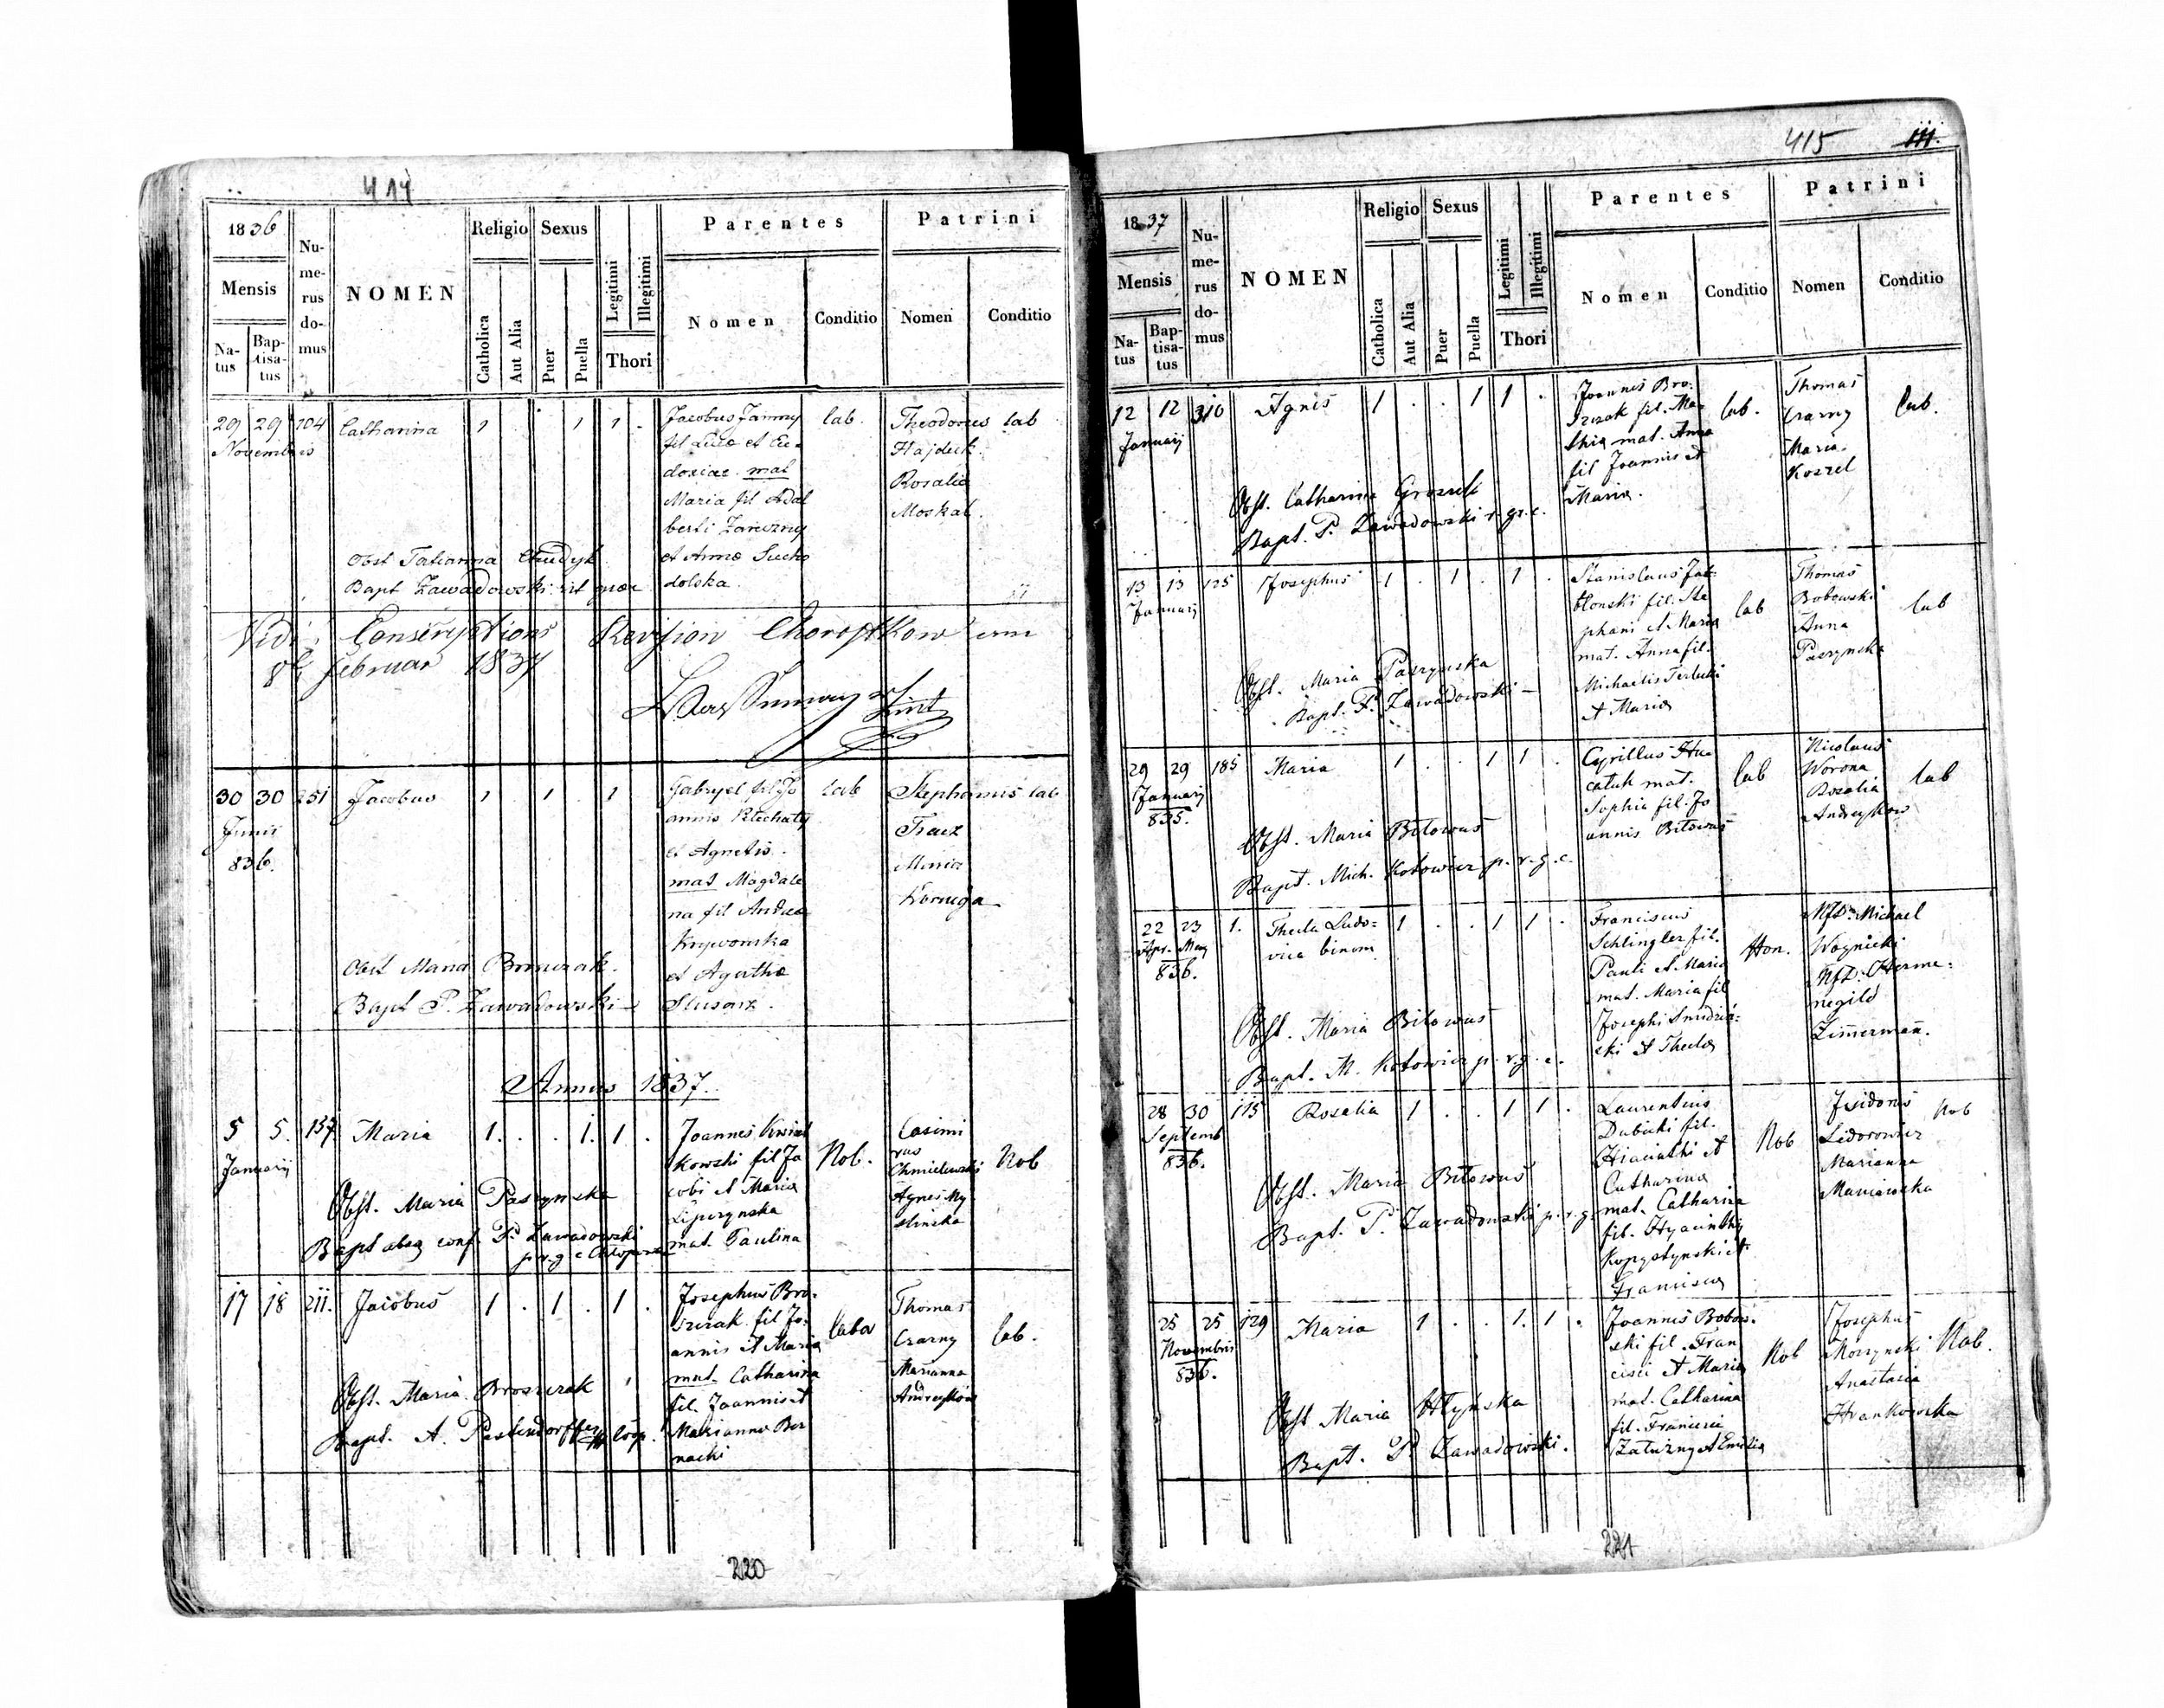 414
1836
Mensis
Natus
Baptisatus
Numerus domus
NOMEN
Religio
Catholica
Aut Alia
Sexus
Puer
Puella
Legitimi
Illegitimi
Thori
Parentes
Nomen
Conditio
Patrini
Nomen
Conditio
29 29 104 Catharina 1 . . 1 1 .
Novembris
Jacobus
fil Lucae et Eu-
doxiae mat
Maria fil Adal
berti
et Anna Sucho
dolska
lab
Theodorus
Hajduk
Rosalia
Moskal.
lab
Obst Tatianna
Bapt Zawadowski rit graec
Vidi Conscriptions Revision Chorostkow
8t Februar 1837
30 30 251 Jacobus 1 . 1 . 1
Junii
836.
Gabryel fil Jo
annis
et Agnetis
mat Magdale
na fil Andrea
et Agatha
lab
Stephanus
Tracz
Maria
lab
Obst Maria
Bapt P. Zawadowski
Annus 1837.
5 5. 157 Maria 1. . . 1. 1 .
Januarij
Joannes Kwiat
kowski fil Ja
cobi et Maria
Lipczynska
mat. Paulina
Nob.
Casimi
rus
Chmielewski
Agnes My
slinska
Nob
Obst. Maria Paszynska
Bapt absq conf. P. Zawadowski
17 18 211. Jacobus 1 . 1 . 1 .
Josephus Bro-
szczak fil Jo-
annis et Maria
mat. Catharina
fil. Joannis et
Marianna Ber
nacki
labo
Thomas
Czarny
Marianna
lab.
Obst. Maria Broszczak
Bapt. A.
220
415
1837
Mensis
Natus
Baptisatus
Numerus domus
NOMEN
Religio
Catholica
Aut Alia
Sexus
Puer
Puella
Legitimi
Illegitimi
Thori
Parentes
Nomen
Conditio
Patrini
Nomen
Conditio
12 12 310 Agnis 1 . . 1 1 .
Januarij
Joannes Bro-
szczak fil. Ma-
thia mat. Anna
fil Joannis et
Maria.
lab.
Thomas
Czarny
Maria
Kozzel
lab.
Obst. Catharina
Bapt. P. Zawadowski r. gr. c.
13 13 125 Josephus 1 . 1 . 1 .
Januarij
Stanislaus Jab-
lonski fil. Ste
phani et Maria
mat. Anna fil.
Michaelis Terlecki
et Maria
lab
Thomas
Bobowski
Anna
Paszynska
lab
Obst. Maria Paszynska
Bapt. P. Zawadowski
29 29 185 Maria 1 . . 1 1 .
Januarij
835.
Cyrillus
mat.
Sophia fil. Jo
annis Bitowus
lab
Nicolaus
Worona
Rozalia
lab
Obst. Maria Bitowus
Bapt. Mich. Kotowicz p. r. g. c.
22 23 1. Thecla Ludo-
vica binom 1 . . 1 1 .
Apr. May
836.
Franciscus
Schlingler fil.
Pauli et Maria
mat. Maria fil
Josephi
ski et Thecla
Hon.
Michael
Woynicki
Herme-
negild
Zimermann.
Obst. Maria Bitowus
Bapt. M. Kotowicz p. r. g. c.
28 30 175 Rosalia 1 . . 1 1 .
Septemb
836.
Laurentius
Dubicki fil.
Hiacinthi et
Catharina
mat. Catharina
fil. Hyacinthy
Kopystynski et
Francisca
Nob
Isidorus
Sidorowicz
Marianna
Maniawska
Nob
Obst. Maria Bitowus
Bapt. P. Zawadowski p. r. g.
25 25 129 Maria 1 . . 1. 1 .
Novembris
836.
Joannes Bobow-
ski fil. Fran
cisci et Maria
mat. Catharina
fil. Francisci
Zaluzny et Emilia
Nob
Josephus
Anastasia
Hrankowska
Nob.
Obst Maria Hlynska
Bapt. P Zawadowski.
221